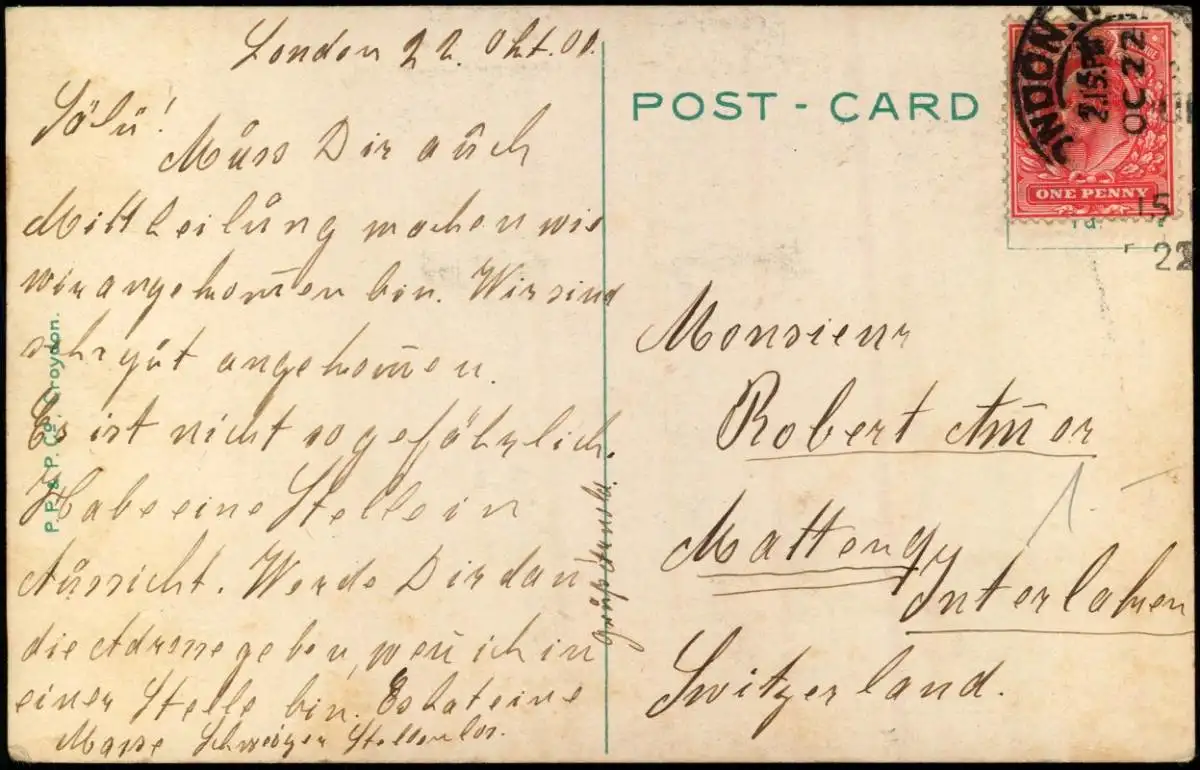 London 22. Okt. 00.
Sälü!
Müss Dir aüch
Mittheilüng machen wie
wir angekom̅en bin. Wir sind
sehr güt angekom̅en.
Es ist nicht so gefährlich.
Habe eine Stelle in
Aüssicht. Werde Dir dan̅
die Adresse geben, wen̅ ich in
einer Stelle bin. Es hat eine
Masse Schweizer Stellenlos.
P.P. & P. Co. Croydon.
POST-CARD
LONDON. W.
2.15.PM
OC 22
ONE PENNY
15
22
Monsieur
Robert Am̅er
Matteng
Interlaken
Switzerland.